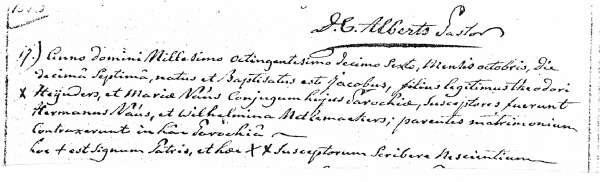 D. C. Alberts Pastor
17.) Anno domini Millesimo octingentesimo decimo sexto, Mensis octobris, Die
decimâ Septimâ, natus et Baptisatus est Jacobus, filius legitimus theodori
X Heijnders, et Mariæ Vaus Conjugum hujus Parochiæ, Susceptores fuerunt
Hermanus Vaus, et Wilhelmina Metsemaekers; parentes matrimonium
Contraxerunt in hâc Parochiâ
hoc + est Signum Patris, et hæc X X Susceptorum Scribere Nescientium